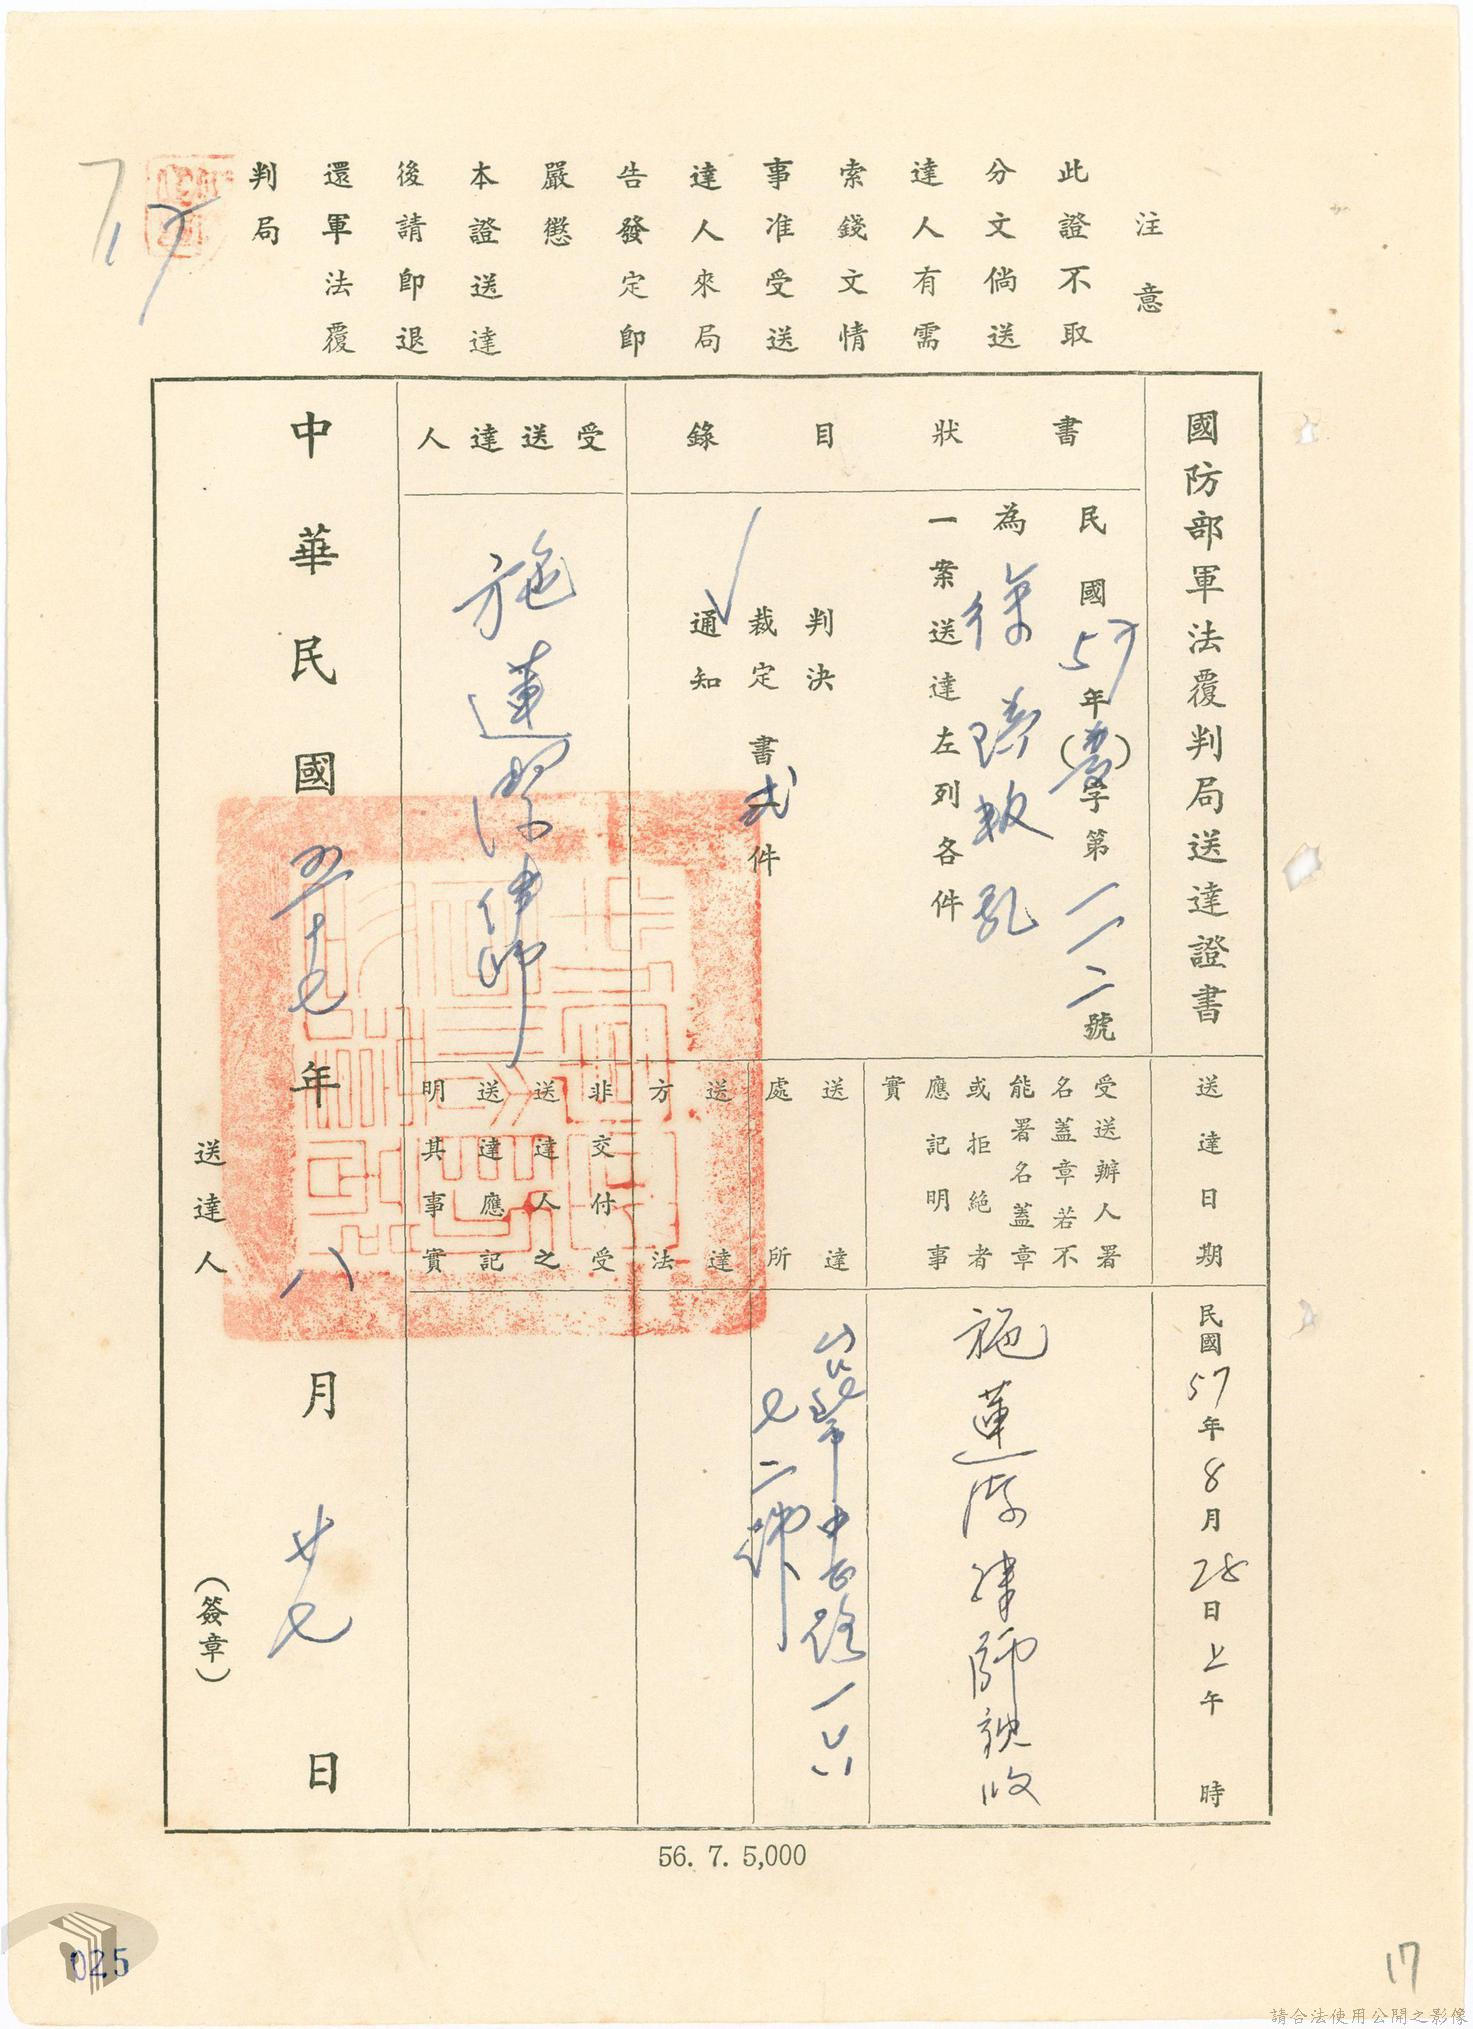 注意
此證不取
分文倘送
達人有需
索錢文情
事准受送
達人來局
告發定卽
嚴懲
本證送達
後請卽退
還軍法覆
判局
國防部軍法覆判局送達證書
書狀目錄
民國57年( )字第一一二號
為徐 叛亂
一案送達左列各件
判決
裁定書弍件
通知
受送達人
施蓮 律師
送達日期
民國57年8月28日上午 時
受送辦人署
名蓋章若不
能署名蓋章
或拒絕者
應記明事
實
施蓮 律師 收
送達
處所
中正路一六
七二號
送達
方法
非交付受
送達人之
送達應記
明其事實
中華民國五十七年八月廿七日
送達人
(簽章)
56. 7. 5,000
025
17
請合法使用公開之影像